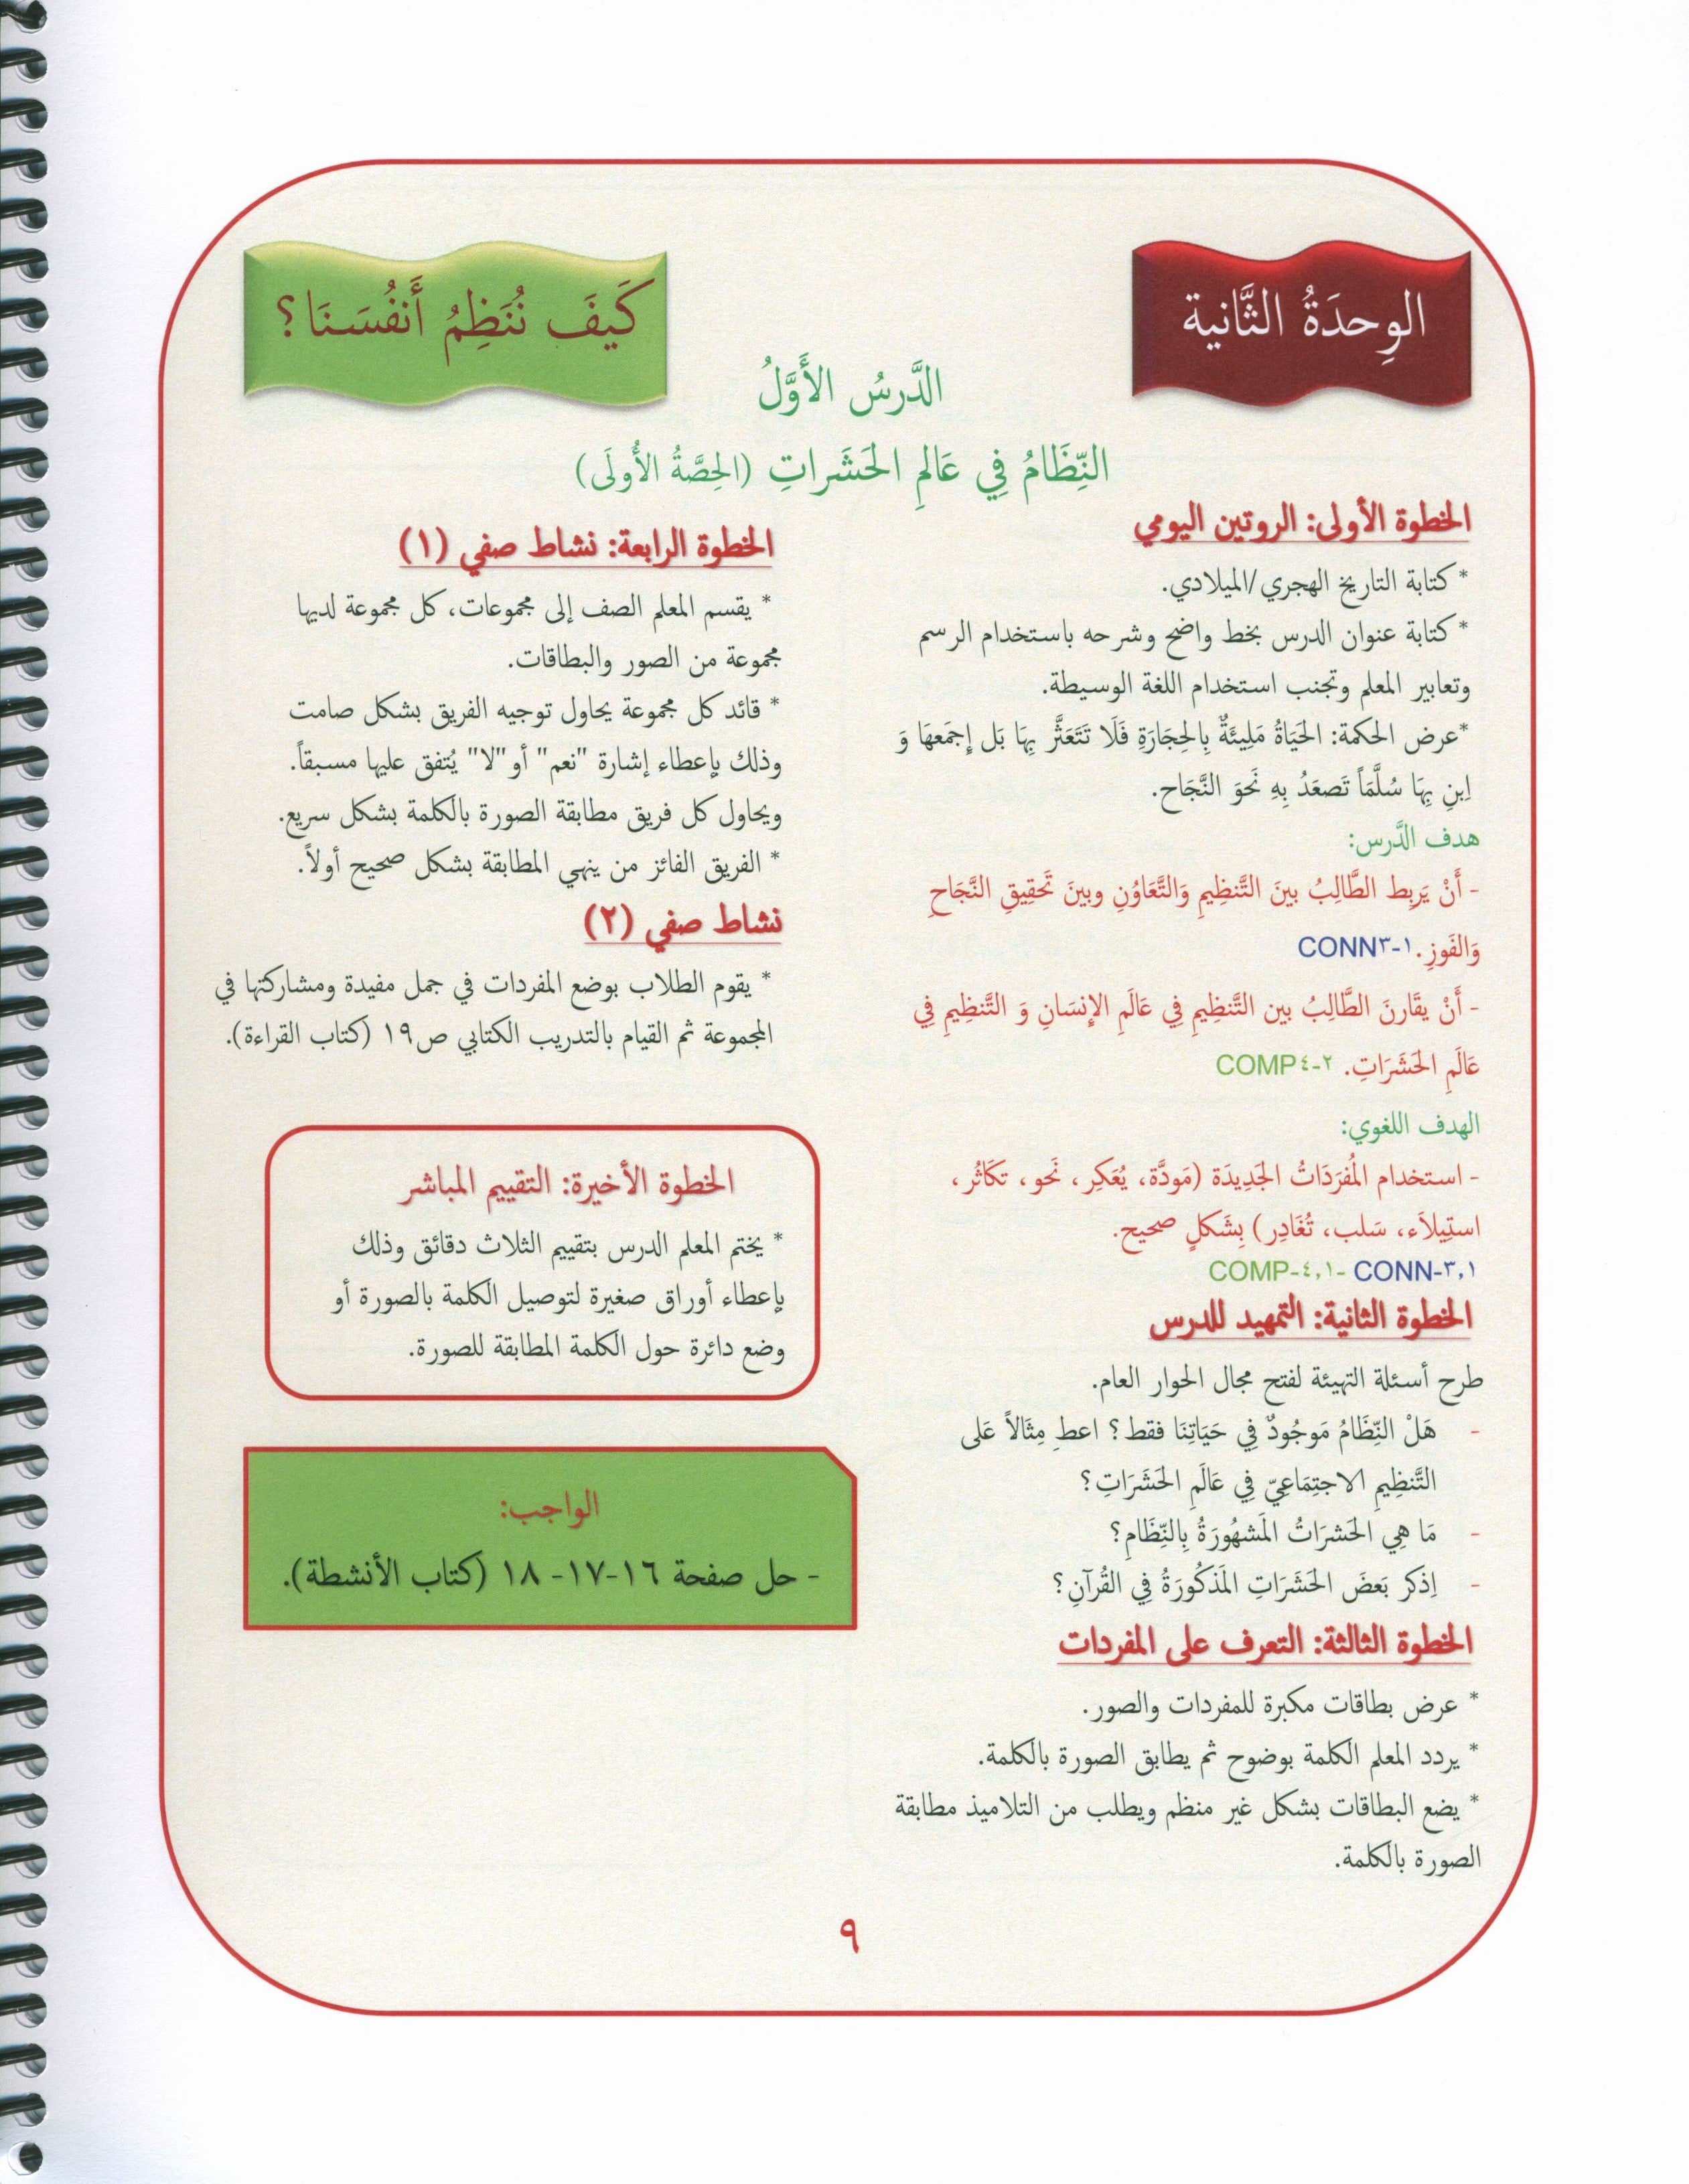 الوِحدَةُ الثَّانية
كَيفَ نُنَظِمُ أَنفُسَنَا؟
الدَّرسُ الأَوَّلُ
النِّظَامُ فِي عَالمِ الحَشَراتِ (الحِصَّةُ الأُولَى)
الخطوة الأولى: الروتين اليومي
* كتابة التاريخ الهجري/الميلادي.
* كتابة عنوان الدرس بخط واضح وشرحه باستخدام الرسم
وتعابير المعلم وتجنب استخدام اللغة الوسيطة.
*عرض الحكمة: الحَيَاةُ مَلِيئَةٌ بِالحِجَارَةِ فَلَا تَتَعَثَّر بِهَا بَل إِجمَعهَا وَ
اِبنِ بِهَا سُلَّمَاً تَصعَدُ بِهِ نَحوَ النَّجَاح.
هدف الدَّرس:
- أَنْ يَربِط الطَّالِبُ بينَ التَّنظِيمِ وَالتَّعَاوُنِ وبينَ تَحقِيقِ النَّجَاحِ
وَالفَوزِ. CONN٣-١
- أَنْ يقَارنَ الطَّالِبُ بين التَّنظِيمِ فِي عَالَمِ الإِنسَانِ وَ التَّنظِيمِ فِي
عَالَمِ الحَشَرَاتِ. COMP٤-٢
الهدف اللغوي:
- استخدام المُفرَدَاتُ الجَدِيدَة (مَودَّة، يُعَكِر، نَحو، تكَاثُر،
استِيلاَء، سَلب، تُغَادِر) بِشَكلٍ صحيح.
COMP-٤,١- CONN-٣,١
الخطوة الثانية: التمهيد للدرس
طرح أسئلة التهيئة لفتح مجال الحوار العام.
- هَلْ النِّظَامُ مَوجُودٌ فِي حَيَاتِنَا فقط؟ اعطِ مِثَالاً عَلى
التَّنظِيمِ الاجتِمَاعِيّ فِي عَالَمِ الحَشَرَاتِ؟
- مَا هِي الحَشرَاتُ المَشهُورَةُ بِالنِّظَامِ؟
- اِذكر بَعضَ الحَشَرَاتِ المَذكُورَةُ فِي القُرآنِ؟
الخطوة الثالثة: التعرف على المفردات
* عرض بطاقات مكبرة للمفردات والصور.
* يردد المعلم الكلمة بوضوح ثم يطابق الصورة بالكلمة.
* يضع البطاقات بشكل غير منظم ويطلب من التلاميذ مطابقة
الصورة بالكلمة.
الخطوة الرابعة: نشاط صفي (١)
* يقسم المعلم الصف إلى مجموعات، كل مجموعة لديها
مجموعة من الصور والبطاقات.
* قائد كل مجموعة يحاول توجيه الفريق بشكل صامت
وذلك بإعطاء إشارة "نعم" أو "لا" يُتفق عليها مسبقاً.
ويحاول كل فريق مطابقة الصورة بالكلمة بشكل سريع.
* الفريق الفائز من ينهي المطابقة بشكل صحيح أولاً.
نشاط صفي (٢)
* يقوم الطلاب بوضع المفردات في جمل مفيدة ومشاركتها في
المجموعة ثم القيام بالتدريب الكتابي ص١٩ (كتاب القراءة).
الخطوة الأخيرة: التقييم المباشر
* يختم المعلم الدرس بتقييم الثلاث دقائق وذلك
بإعطاء أوراق صغيرة لتوصيل الكلمة بالصورة أو
وضع دائرة حول الكلمة المطابقة للصورة.
الواجب:
- حل صفحة ١٦-١٧- ١٨ (كتاب الأنشطة).
٩